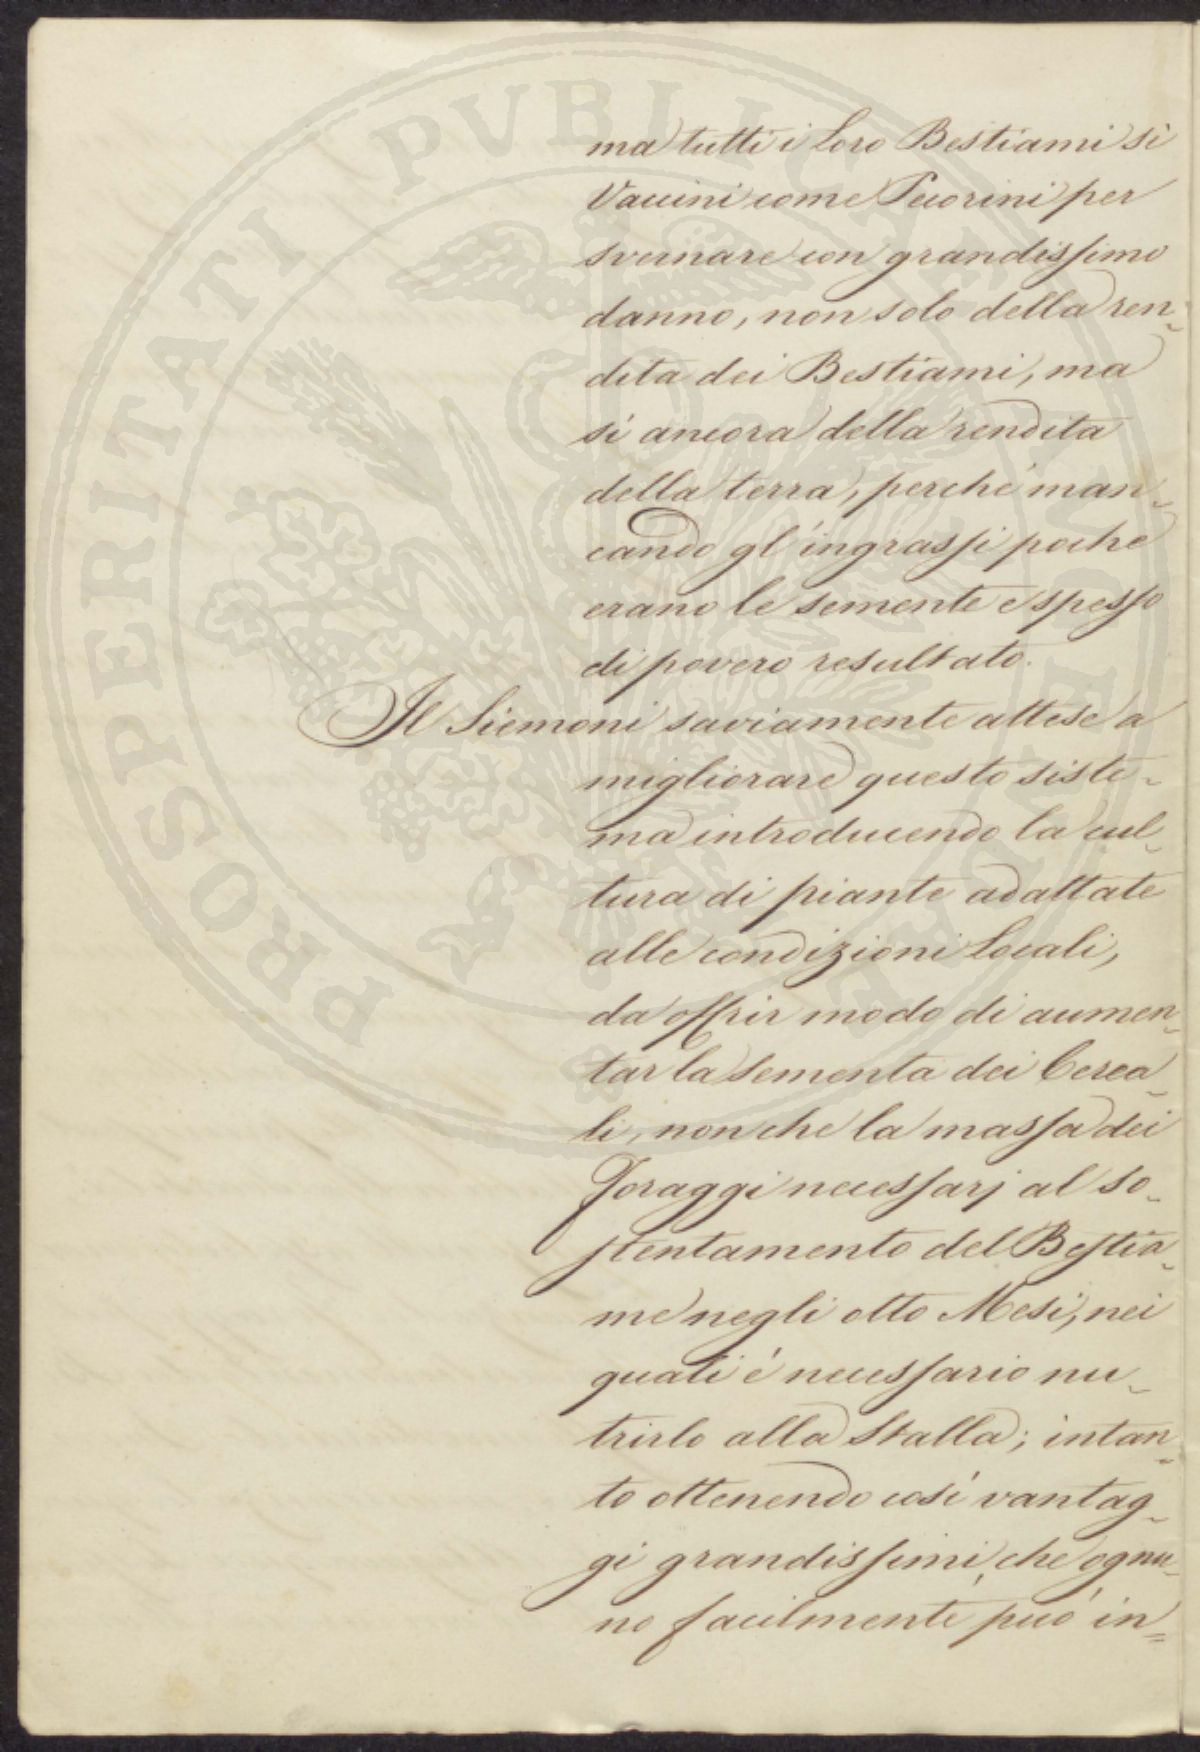 ma tutti i loro Bestiami sì
Vaccini come Pecorini per
svernare con grandissimo
danno, non solo della ren-
dita dei Bestiami, ma
sì ancora della rendita
della terra, perché man-
cando gl'ingrassi poche
erano le semente e spesso
di povero resultato.
Il Siemoni saviamente attese a
migliorare questo siste-
ma introducendo la cul-
tura di piante adattate
alle condizioni locali,
da offrir modo di aumen-
tar la sementa dei Cerea-
li, non che la massa dei
Foraggi necessarj al so-
stentamento del Bestia-
me negli otto Mesi, nei
quali é necessario nu-
trirlo alla Stalla; intan-
to ottenendo così vantag-
gi grandissimi, che ognu-
no facilmente può in=
PROSPERITATI PVBLICAE AVGENDAE